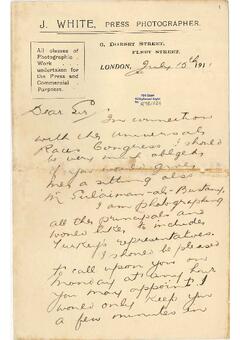 J. WHITE, PRESS PHOTOGRAPHER.
All classes of
Photographic
Work
undertaken for
the Press and
Commercial
Purposes.
6, DORSET STREET,
FLEET STREET,
LONDON, July 15th 1911
Dear Sir In connection
with the Universal
Races Congress I should
be very much obliged
if you would give
me a sitting also
Mr Sulaiman-al-Bustany,
I am photographing
all the principals and
would like to include
Turkey's representatives.
I should be pleased
to call upon you on
Monday at any hour
you may appoint I
would only keep you
a few minutes in